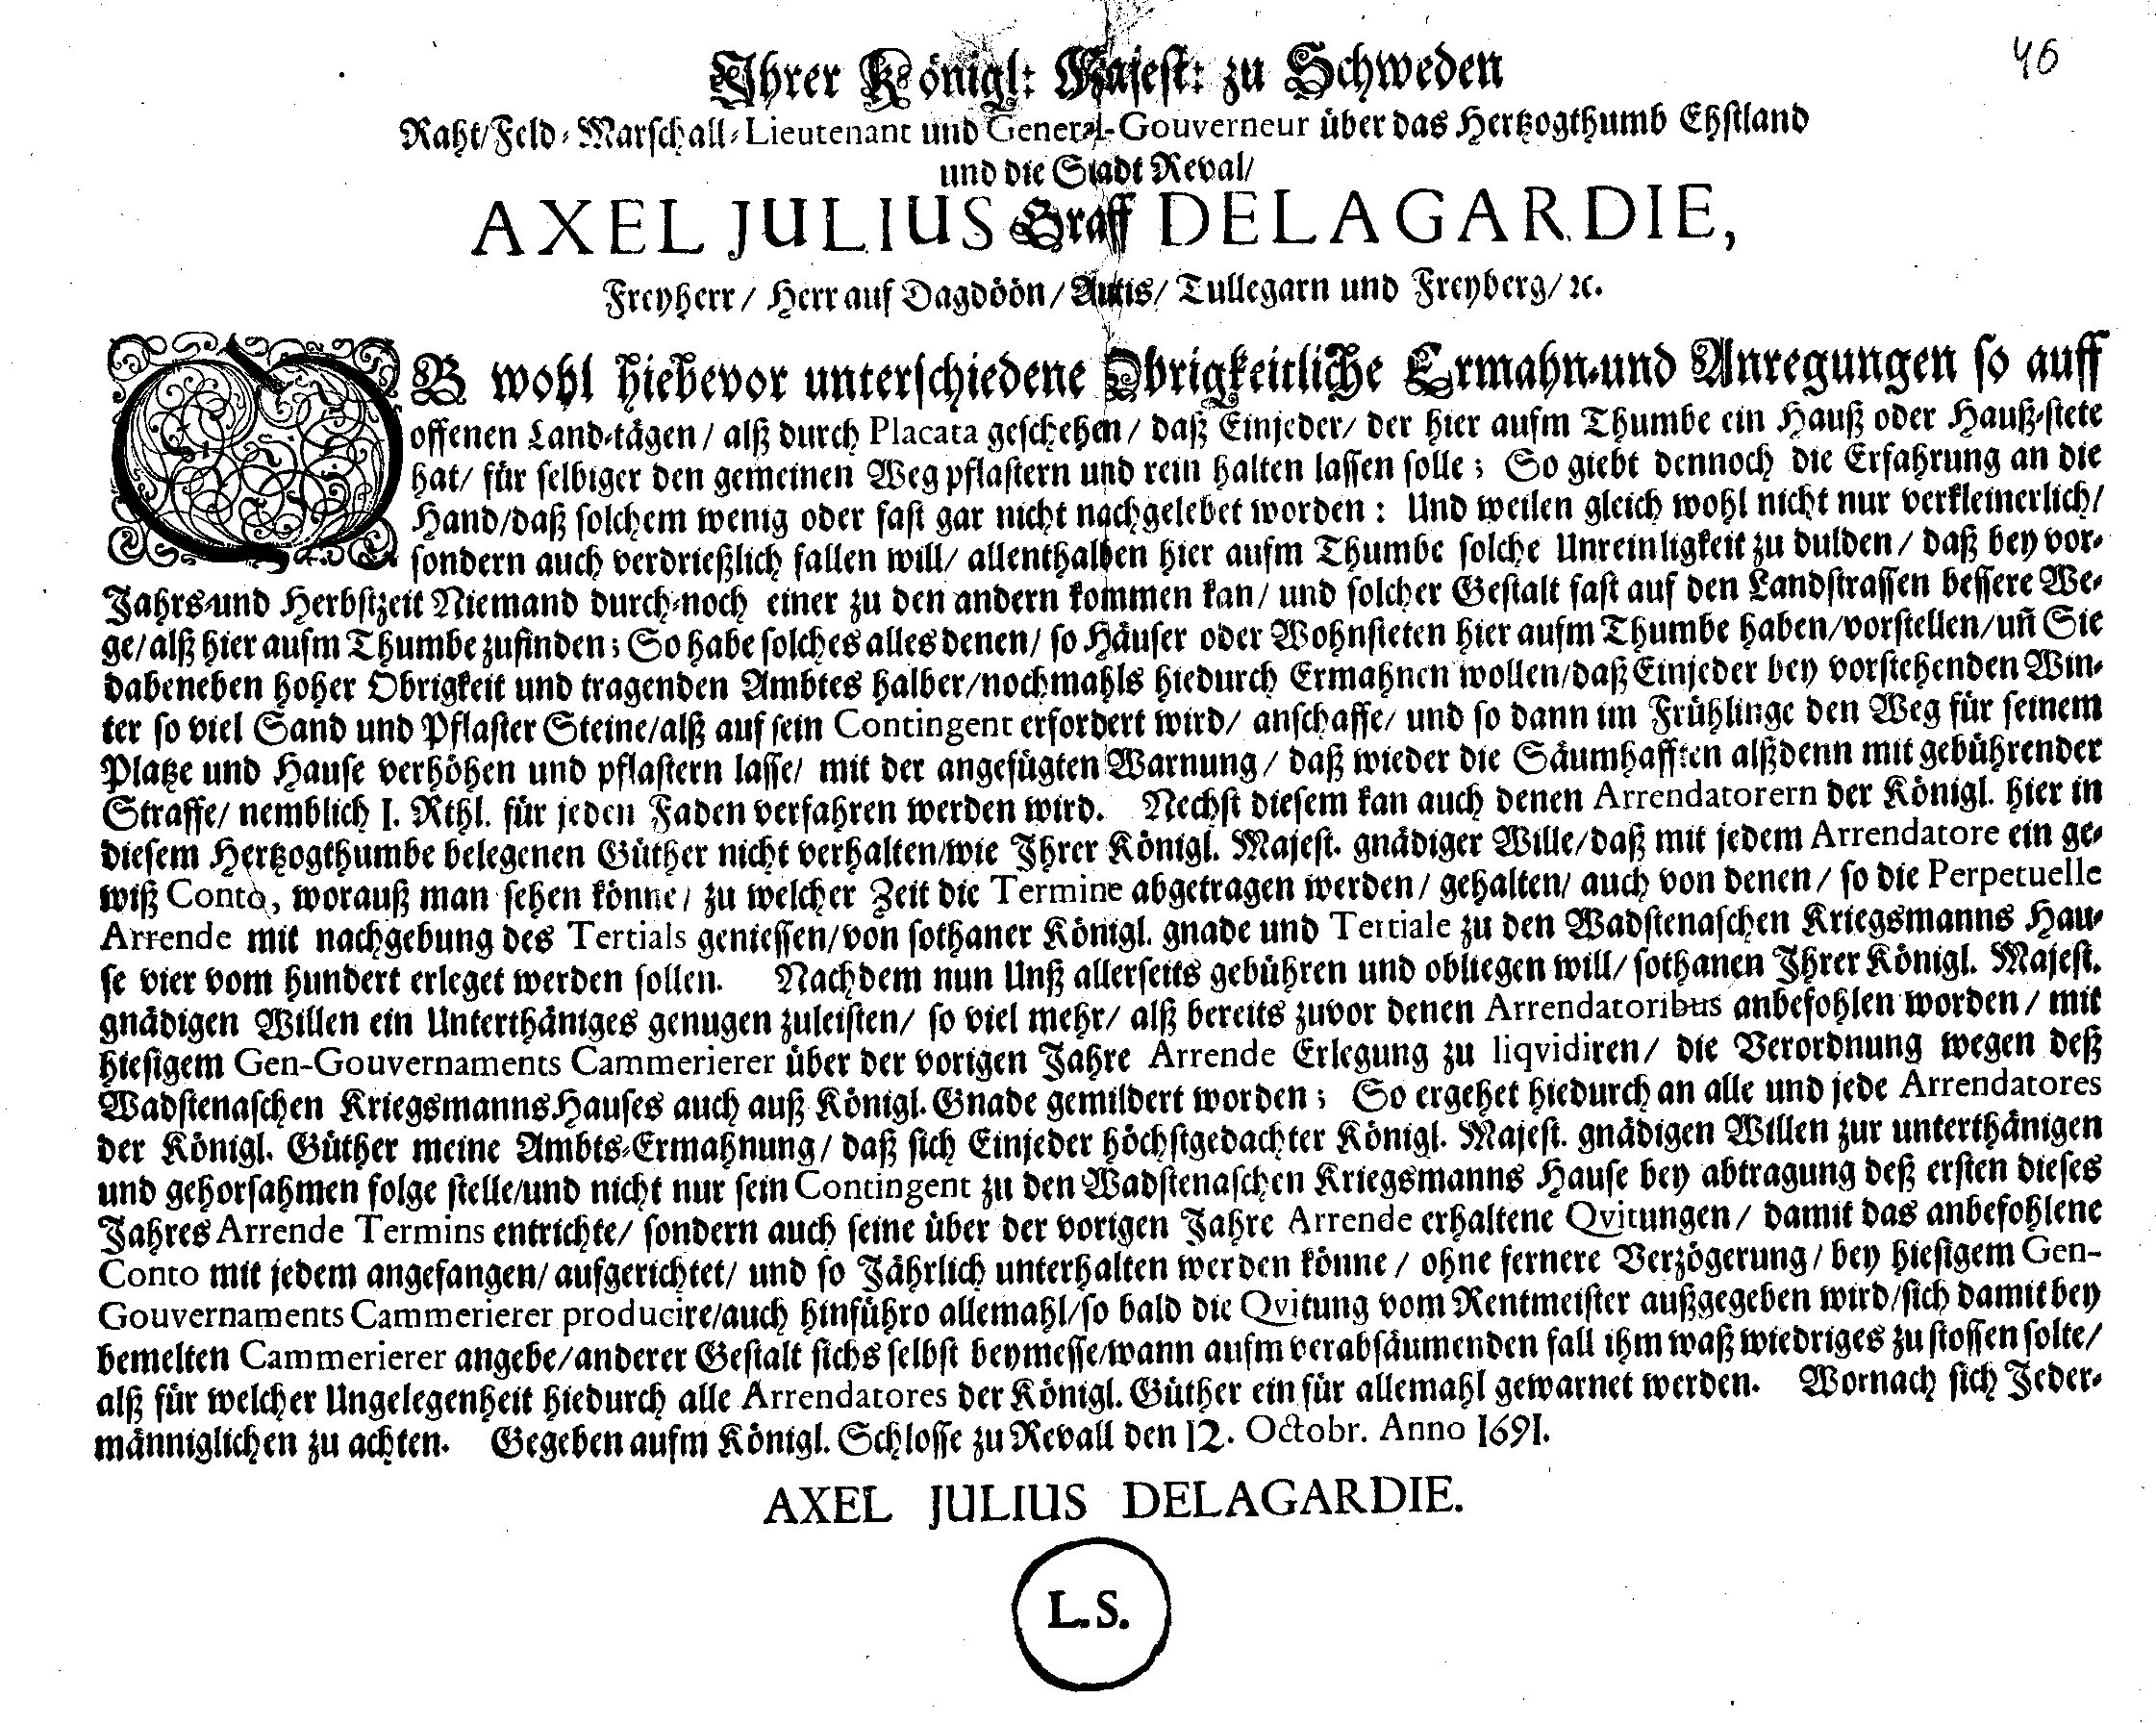 46
Ihrer Königl: Majest: zu Schweden
Raht/Feld-Marschall-Lieutenant und General-Gouverneur über das Hertzogthumb Ehstland
und die Stadt Reval/
AXEL JULIUS Graff DELAGARDIE,
Freyherr/ Herr auf Dagdöön/ Arkis/ Tullegarn und Freyberg/ ꝛc.
OB wohl hiebevor unterschiedene Obrigkeitliche Ermahn-und Anregungen so auff
offenen Land-tägen/ alß durch Placata geschehen/ daß Einjeder/ der hier aufm Thumbe ein Hauß oder Hauß-stete
hat/ für selbiger den gemeinen Weg pflastern und rein halten lassen solle; So giebt dennoch die Erfahrung an die
Hand/daß solchem wenig oder fast gar nicht nachgelebet worden: Und weilen gleich wohl nicht nur verkleinerlich/
sondern auch verdrießlich fallen will/ allenthalben hier aufm Thumbe solche Unreinligkeit zu dulden/ daß bey vor-
Jahrs-und Herbstzeit Niemand durch-noch einer zu den andern kommen kan/ und solcher Gestalt fast auf den Landstrassen bessere We-
ge/alß hier aufm Thumbe zufinden; So habe solches alles denen/ so Häuser oder Wohnsteten hier aufm Thumbe haben/vorstellen/uñ Sie
dabeneben hoher Obrigkeit und tragenden Ambtes halber/nochmahls hiedurch Ermahnen wollen/daß Einjeder bey vorstehenden Win-
ter so viel Sand und Pflaster Steine/alß auf sein Contingent erfordert wird/ anschaffe/ und so dann im Frühlinge den Weg für seinem
Platze und Hause verhöhen und pflastern lasse/ mit der angefügten Warnung/ daß wieder die Säumhafften alßdenn mit gebührender
Straffe/ nemblich 1. Rthl. für jeden Faden verfahren werden wird. Nechst diesem kan auch denen Arrendatorern der Königl. hier in
diesem Hertzogthumbe belegenen Güther nicht verhalten/wie Ihrer Königl. Majest. gnädiger Wille/daß mit jedem Arrendatore ein ge-
wiß Conto, worauß man sehen könne/ zu welcher Zeit die Termine abgetragen werden/ gehalten/ auch von denen/ so die Perpetuelle
Arrende mit nachgebung des Tertials geniessen/von sothaner Königl. gnade und Tertiale zu den Wadstenaschen Kriegsmanns Hau-
se vier vom hundert erleget werden sollen. Nachdem nun Unß allerseits gebühren und obliegen will/ sothanen Ihrer Königl. Majest.
gnädigen Willen ein Unterthäniges genugen zuleisten/ so viel mehr/ alß bereits zuvor denen Arrendatoribus anbefohlen worden/ mit
hiesigem Gen-Gouvernaments Cammerierer über der vorigen Jahre Arrende Erlegung zu liqvidiren/ die Verordnung wegen deß
Wadstenaschen Kriegsmanns Hauses auch auß Königl. Gnade gemildert worden; So ergehet hiedurch an alle und jede Arrendatores
der Königl. Güther meine Ambts-Ermahnung/ daß sich Einjeder höchstgedachter Königl. Majest. gnädigen Willen zur unterthänigen
und gehorsahmen folge stelle/und nicht nur sein Contingent zu den Wadstenaschen Kriegsmanns Hause bey abtragung deß ersten dieses
Jahres Arrende Termins entrichte/ sondern auch seine über der vorigen Jahre Arrende erhaltene Qvitungen/ damit das anbefohlene
Conto mit jedem angefangen/ aufgerichtet/ und so Jährlich unterhalten werden könne/ ohne fernere Verzögerung/ bey hiesigem Gen-
Gouvernaments Cammerierer producire/auch hinführo allemahl/so bald die Qvitung vom Rentmeister außgegeben wird/sich damit bey
bemelten Cammerierer angebe/anderer Gestalt sichs selbst beymesse/wann aufm verabsäumenden fall ihm waß wiedriges zu stossen solte/
alß für welcher Ungelegenheit hiedurch alle Arrendatores der Königl. Güther ein für allemahl gewarnet werden. Wornach sich Jeder-
männiglichen zu achten. Gegeben aufm Königl. Schlosse zu Revall den 12. Octobr. Anno 1691.
AXEL JULIUS DELAGARDIE.
L.S.